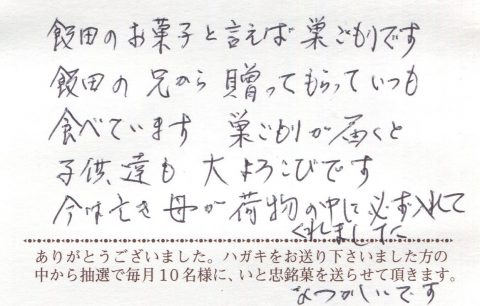 飯田のお菓子と言えば巣ごもりです
飯田の兄から贈ってもらっていつも
食べています 巣ごもりが届くと
子供達も大よろこびです
今は亡き母が荷物の中に必ず入れて
くれしました
ありがとうございました。ハガキをお送り下さいました方の
中から抽選で毎月10名様に、いと忠銘菓を送らせて頂きます。
なつかしいです